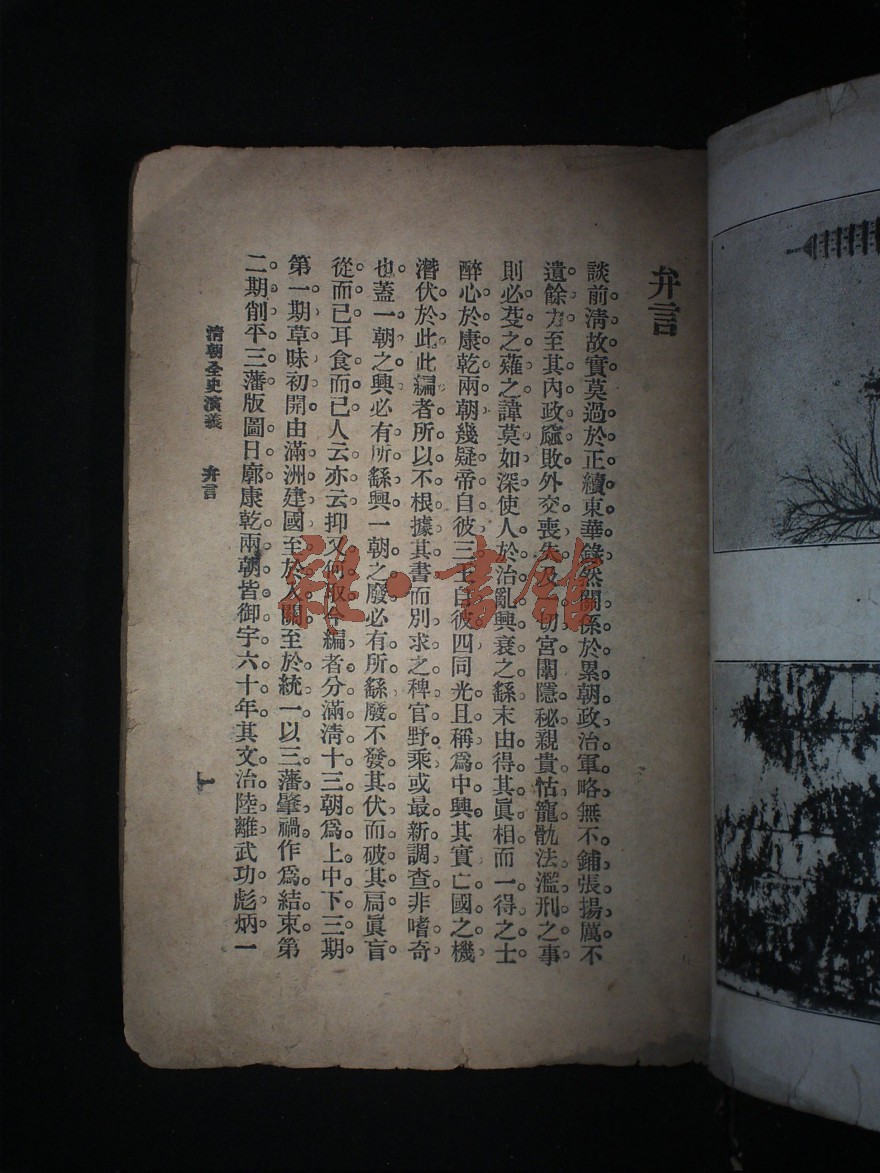 弁言
談前淸故實莫過於正續東華錄然關係於累朝政治軍略無不鋪張揚厲不
遺餘力至其內政廢敗外交喪失及一切宮闈隱秘親貴怙寵骫法濫刑之事
則必芟之薙之諱莫如深使人於治亂興衰之繇末由得其眞相而一得之士
醉心於康乾兩朝幾疑帝自彼三王自彼四同光且稱爲中興其實亡國之機
潛伏於此此編者所以不根據其書而別求之稗官野乘或最新調查非嗜奇
也蓋一朝之興必有所繇興一朝之廢必有所繇廢不發其伏而破其扃眞盲
從而已耳食而已人云亦云抑又何取今編者分滿淸十三朝爲上中下三期
第一期草昧初開由滿洲建國至於入關至於統一以三藩肇禍作爲結束第
二期削平三藩版圖日廓康乾兩朝皆御宇六十年其文治陸離武功彪炳一
淸朝全史演義 弁言
一
雜·書館